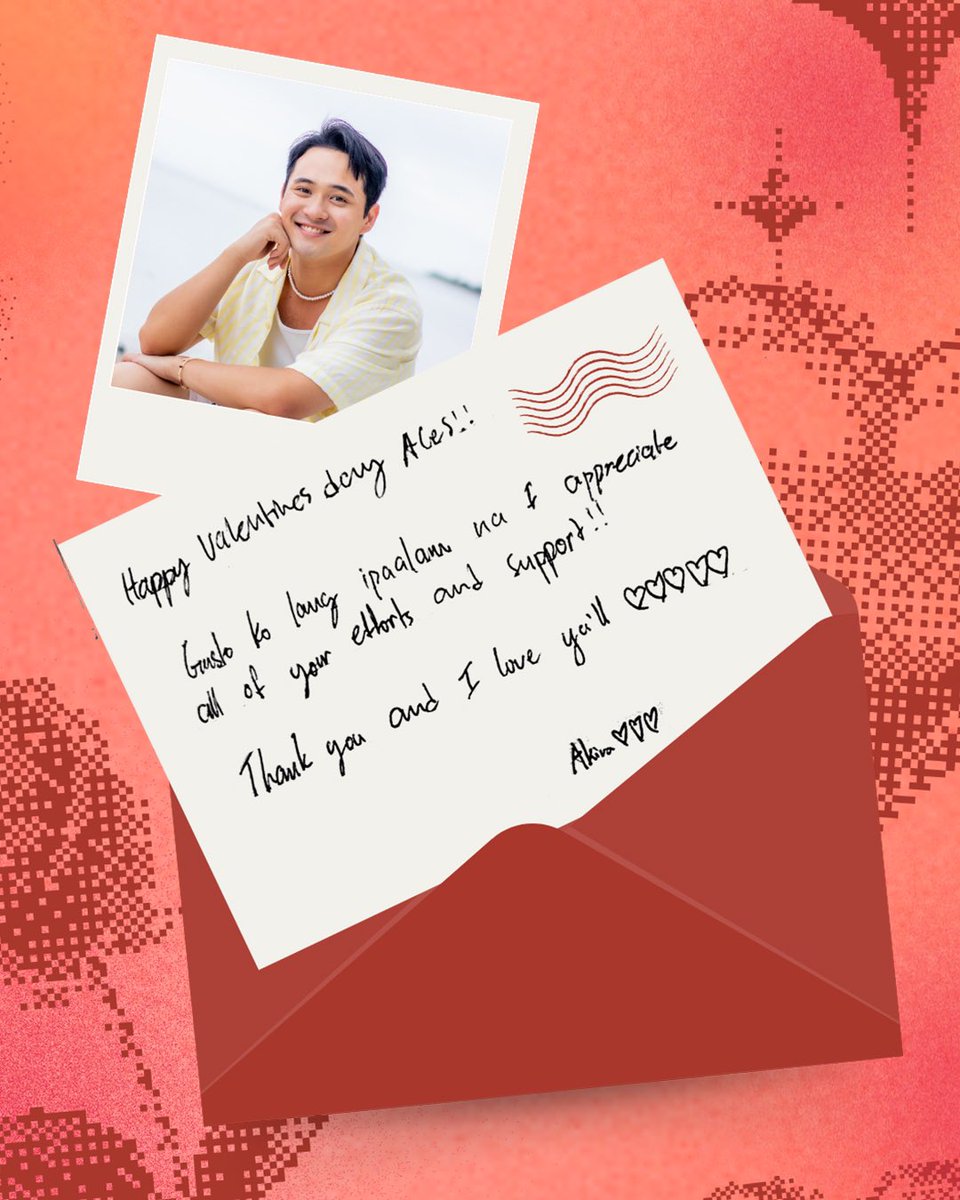 Happy Valentines day Aces!!
Gusto ko lang ipaalam na I appreciate
all of your efforts and support!!
Thank you and I love ya'll ♡♡♡♡♡
Akira♡♡♡